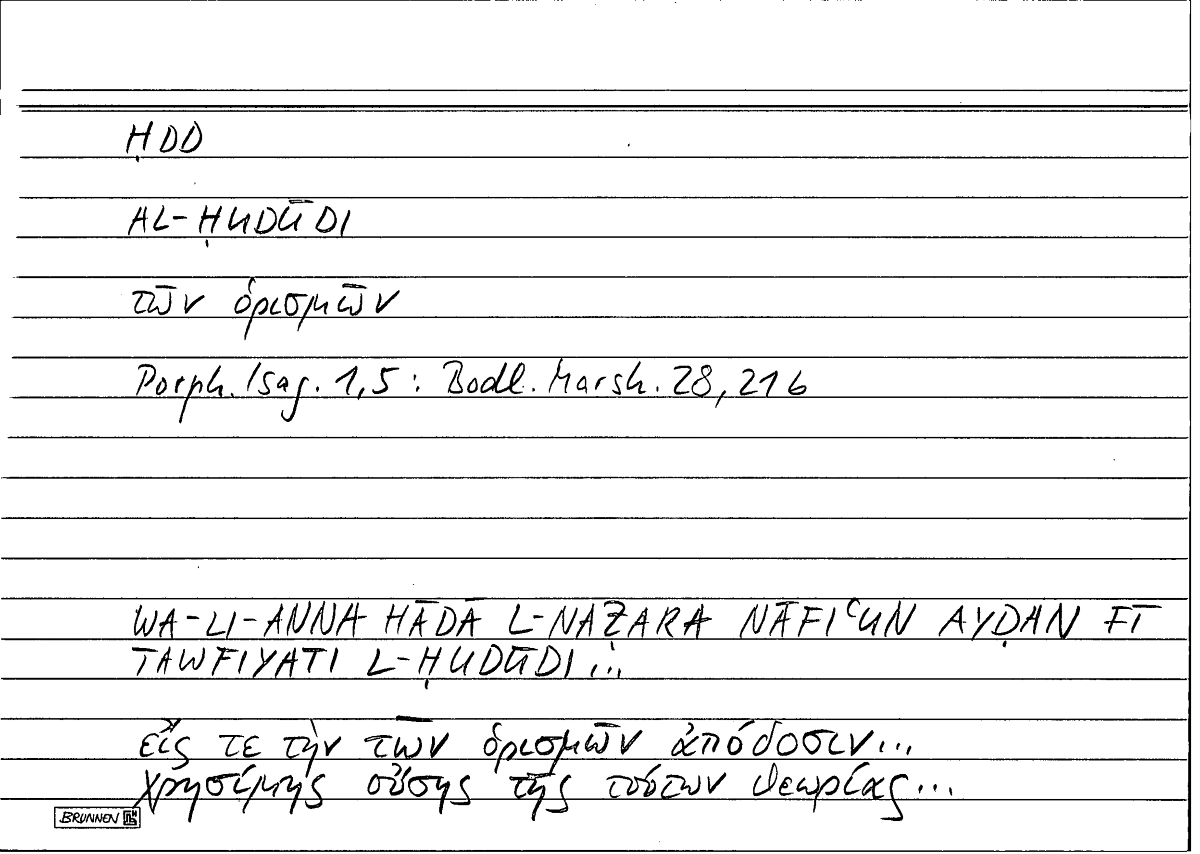 ḤDD
AL-ḤUDŪDI
τῶν ὁρισμῶν
Porph. Isag. 1,5: Bodl. Marsh. 28, 216
WA-LI-ANNA HĀDĀ L-NAẒARA NĀFIʿUN AYḌAN FĪ
TAWFIYATI L-ḤUDŪDI...
εἴς τε τὴν τῶν ὁρισμῶν ἀπόδοσιν...
χρησίμης οὔσης τῆς τούτων θεωρίας...
BRUNNEN